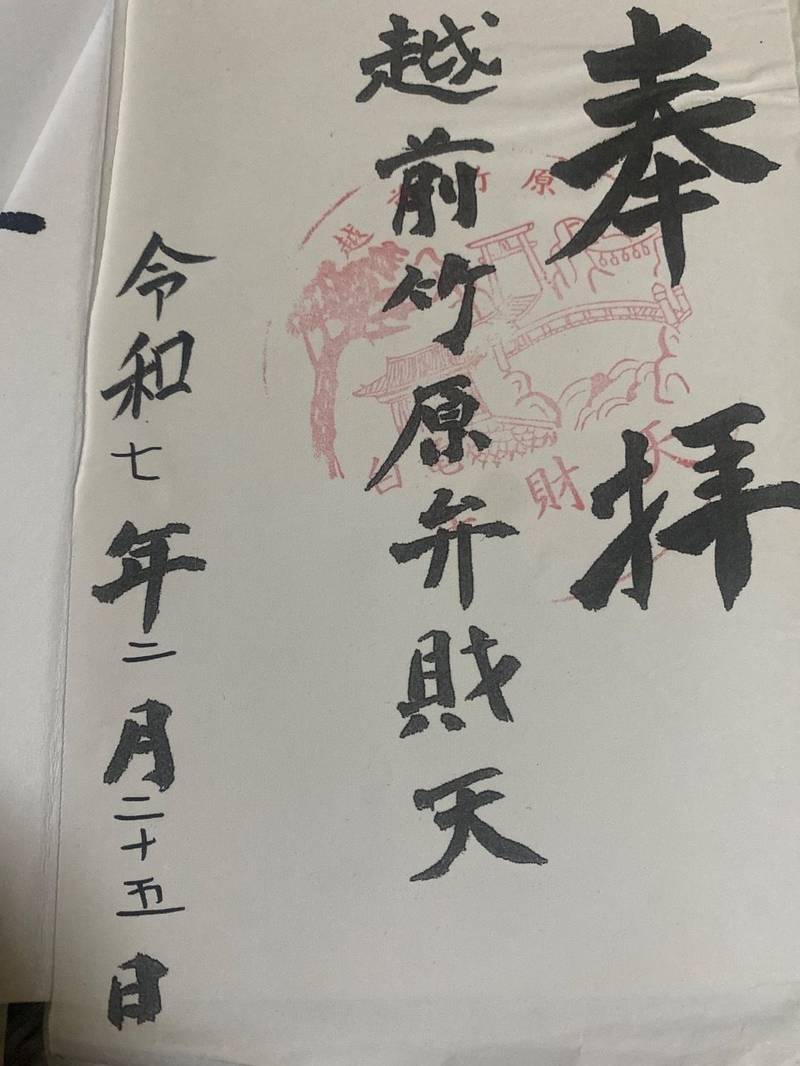 奉拝
越前竹原弁財天
令和七年二月二十五日